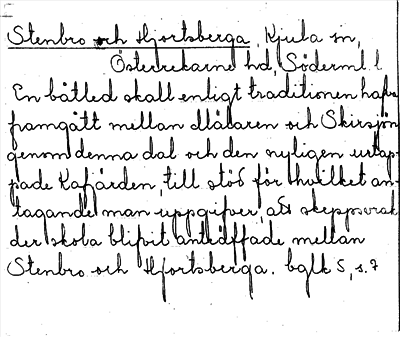 Stenbro och Hjortsberga, Kjula sn,
Österrekarne hd, Söderml. l
En båtled skall enligt traditionen hafva
framgått mellan Mälaren och Skirsjön
genom denna dal och den nyligen urtap-
pade Kafjärden, till stöd för hvilket an-
tagande man uppgifver, att skeppsvrak
der skola blifvit anträffade mellan
Stenbro och Hjortsberga. bglk 5, s. 7